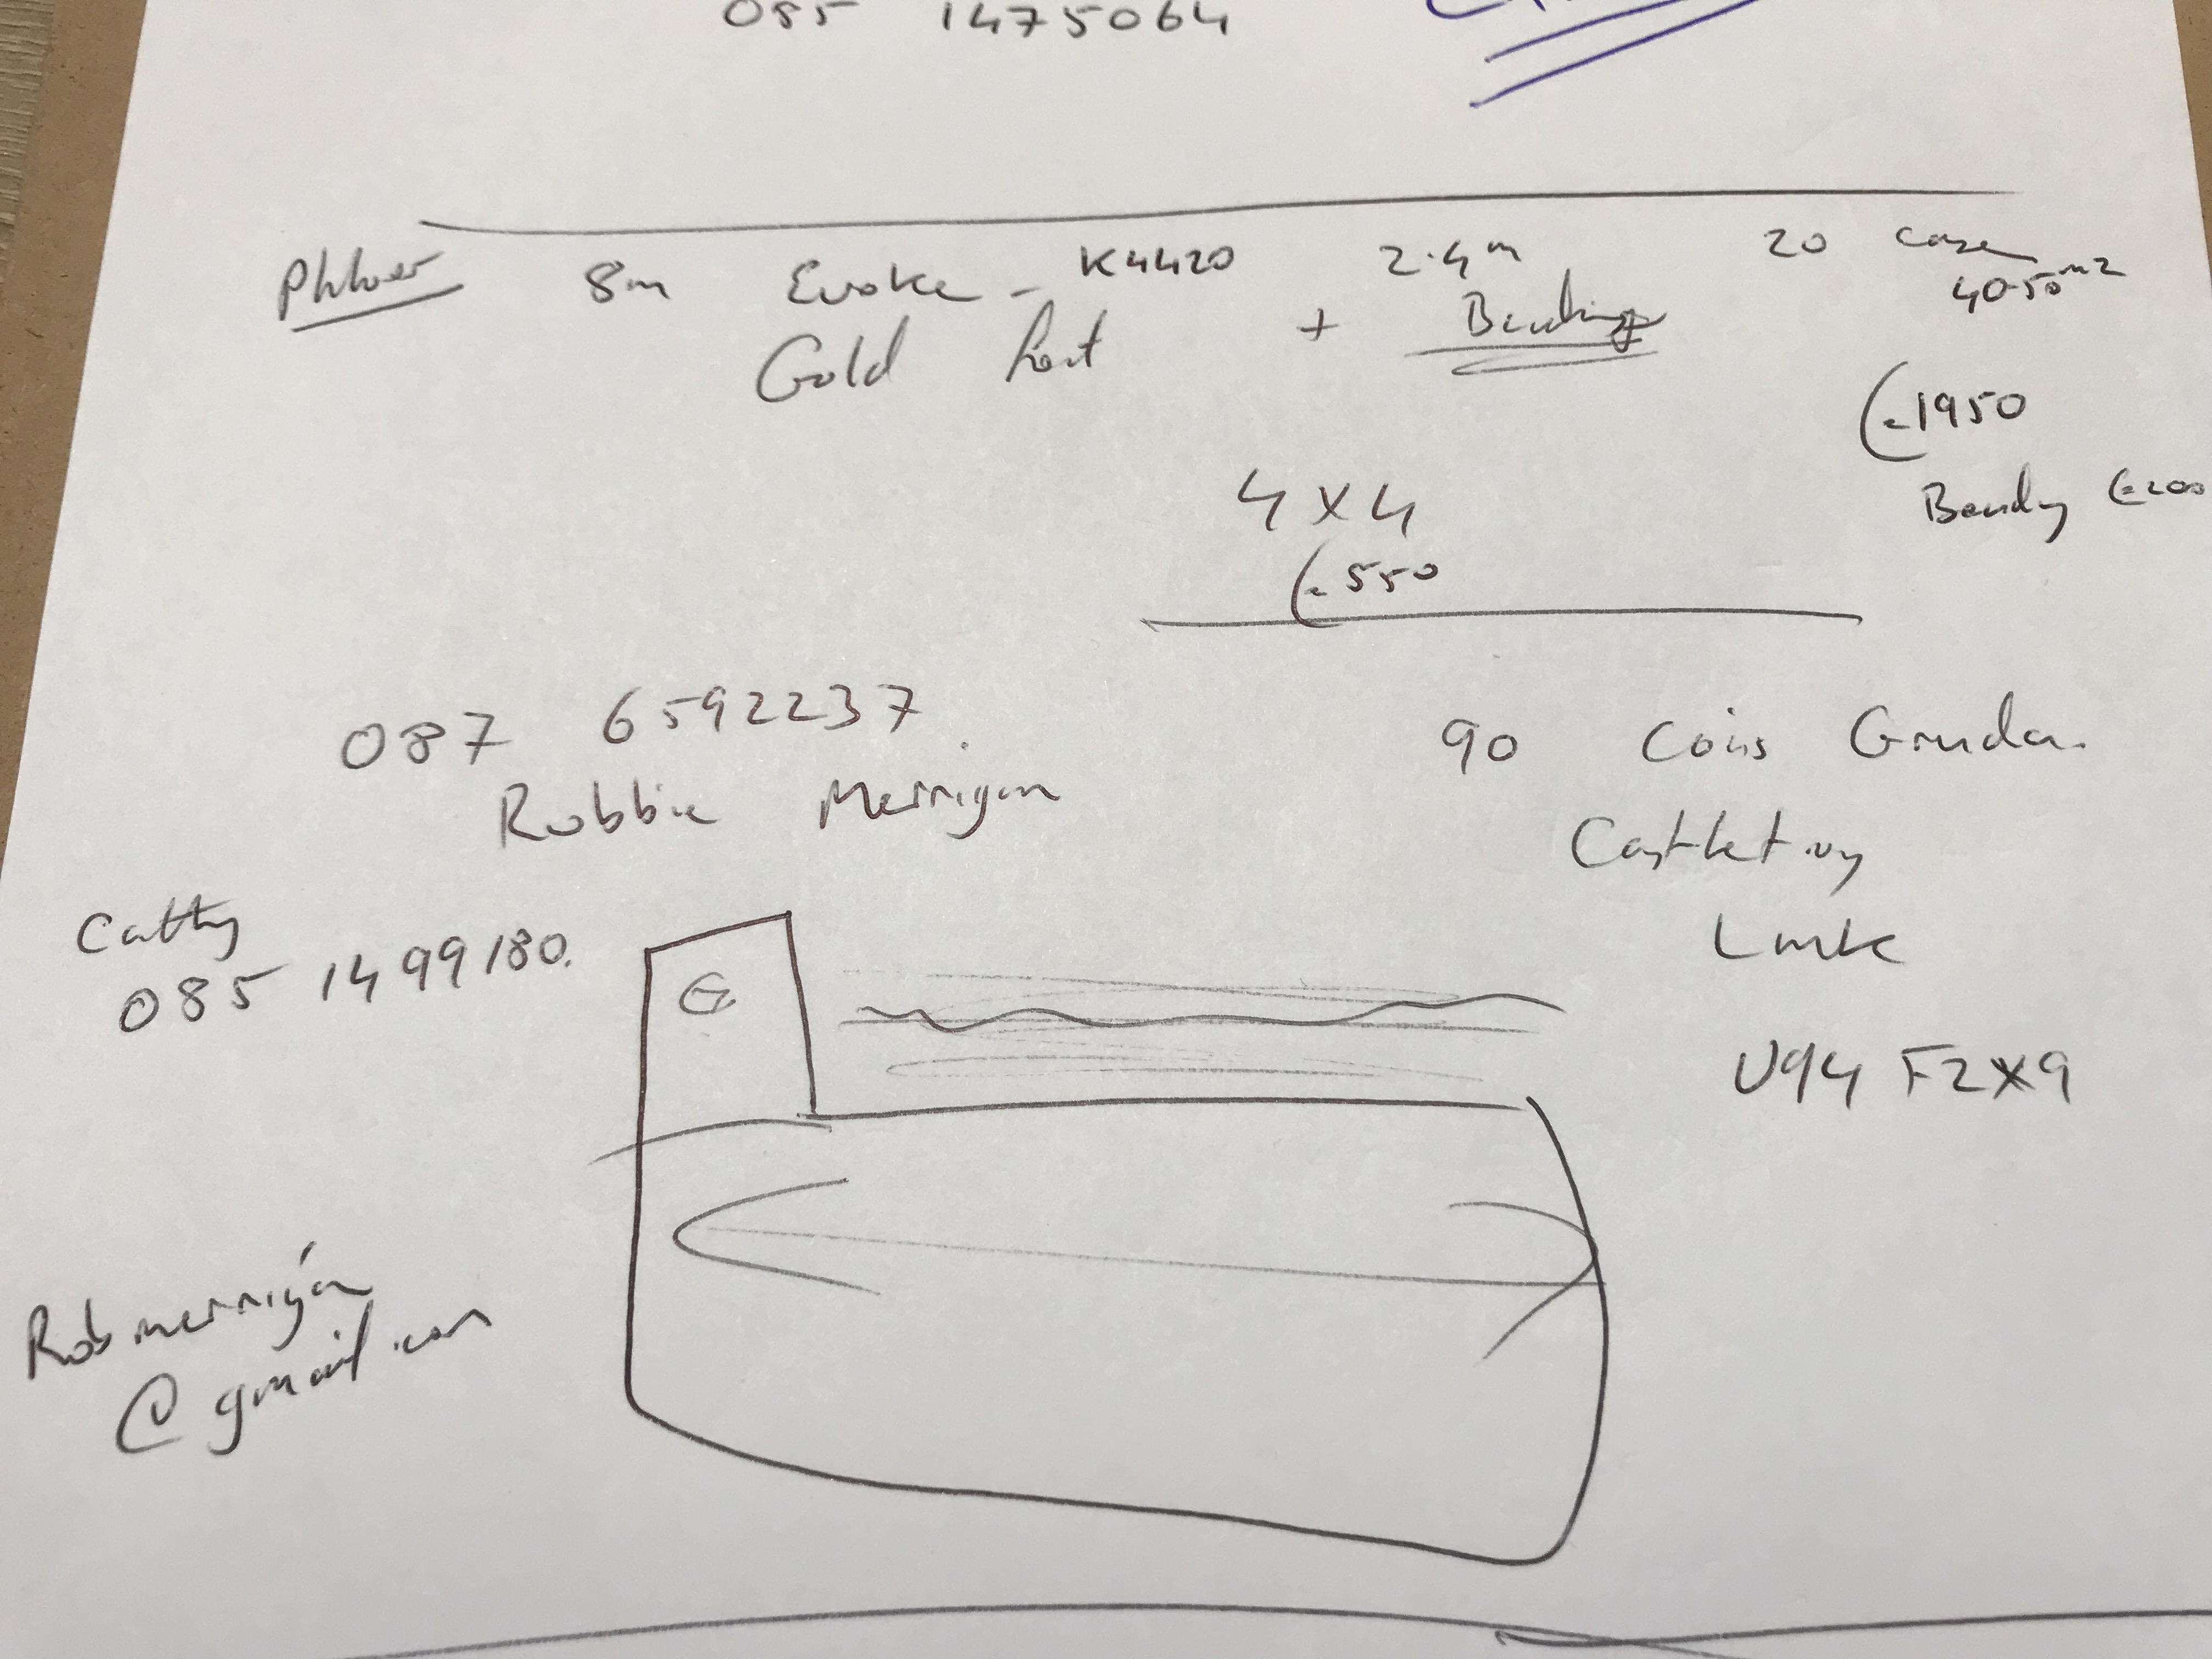 085 1475064
8m Evoke - K4420 + 2.4m 20 case
40.50m2
Gold
Beading
€1950
€200
4 x 4
€550
087 6592237.
Robbie Merrigan
90 Cois
Castletroy
Cathy
085 1499180.
V94 F2X9
Robmerrigan
@gmail.com